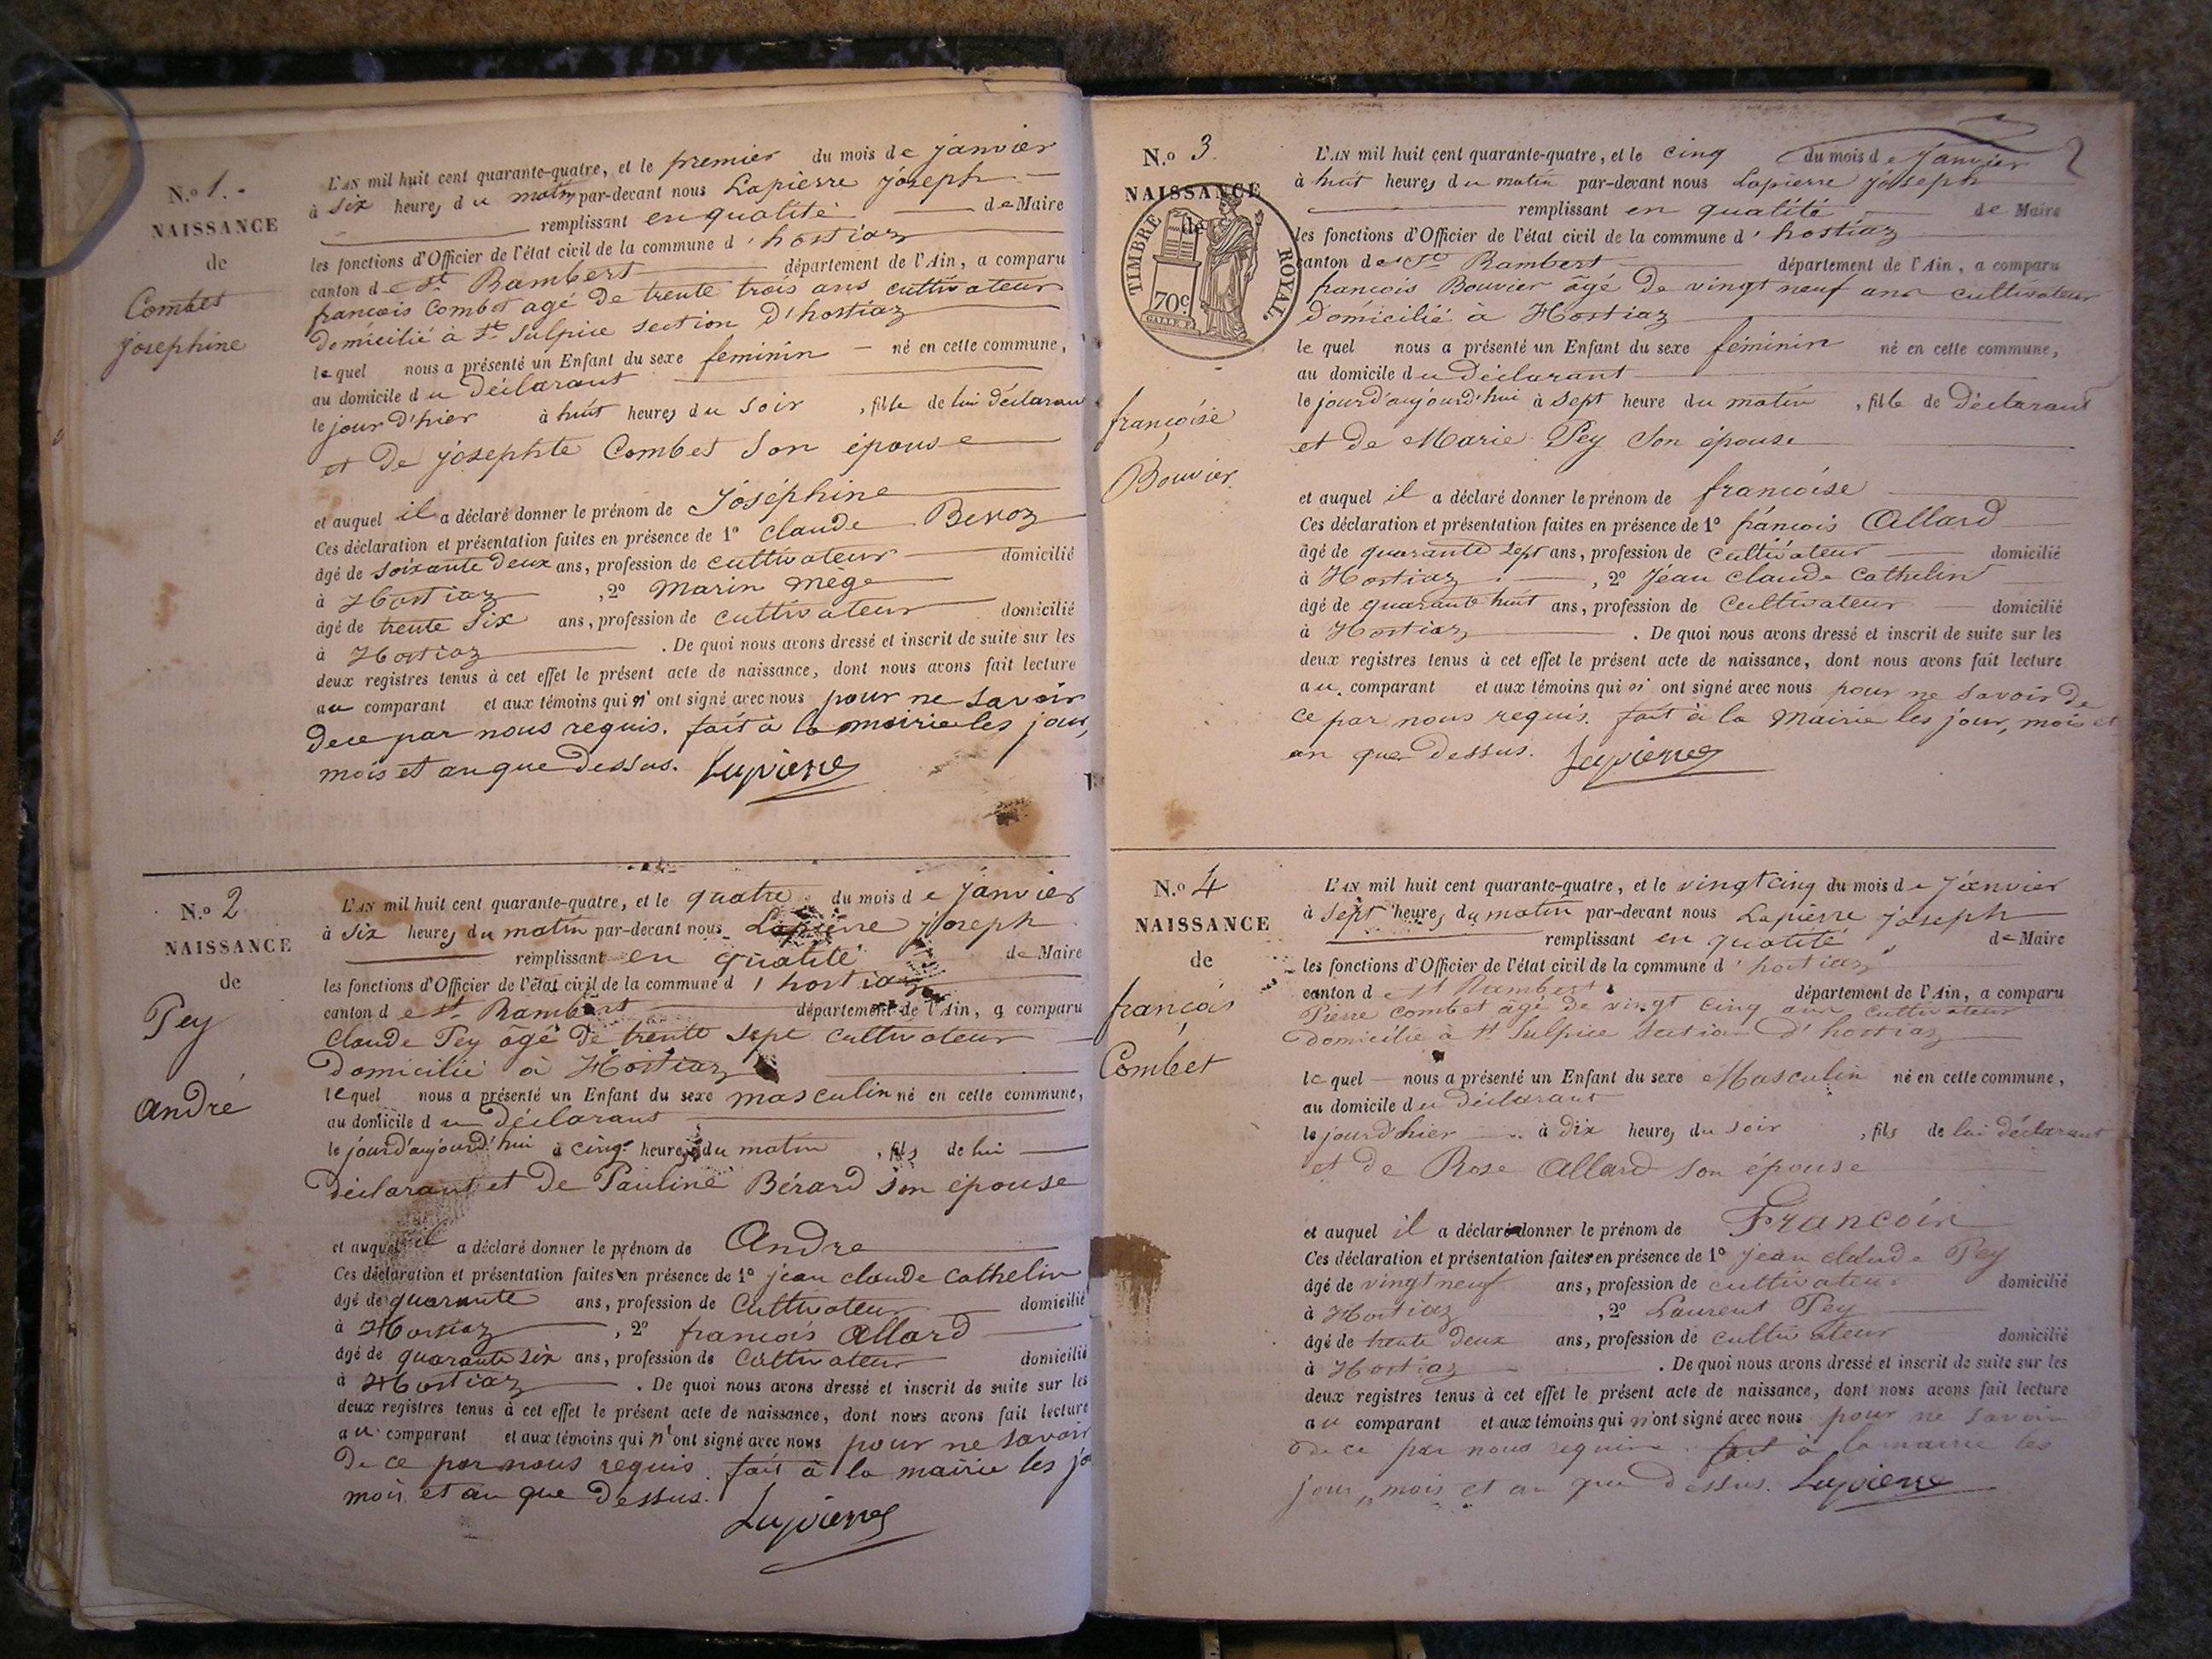 N.o 1.
NAISSANCE
de
Combet
josephine
L'AN mil huit cent quarante-quatre, et le premier du mois de janvier
à six heures du matin par-devant nous Lapierre joseph
remplissant en qualité de Maire
les fonctions d'Officier de l'état civil de la commune d'hostiaz
canton de St Rambert département de l'Ain, a comparu
francois Combet agé de trente trois ans cultivateur
domicilié à St Sulpice section d'hostiaz
lequel nous a présenté un Enfant du sexe feminin né en cette commune,
au domicile du déclarant
le jour d'hier à huit heures du soir, fille de lui déclarant
et de josephte Combet son épouse
et auquel il a déclaré donner le prénom de Joséphine
Ces déclaration et présentation faites en présence de 1o claude Beroz
âgé de soixante deux ans, profession de cultivateur domicilié
à Hostiaz, 2o Marin Mège
âgé de trente six ans, profession de cultivateur domicilié
à Hostiaz. De quoi nous avons dressé et inscrit de suite sur les
deux registres tenus à cet effet le présent acte de naissance, dont nous avons fait lecture
au comparant et aux témoins qui n'ont signé avec nous pour ne savoir
dece par nous requis. fait à la mairie les jour,
mois et an que dessus. Lapierre
N.o 2
NAISSANCE
de
Pey
andré
L'AN mil huit cent quarante-quatre, et le quatre du mois de janvier
à six heures du matin par-devant nous Lapierre joseph
remplissant en qualité de Maire
les fonctions d'Officier de l'état civil de la commune d'hostiaz
canton de St Rambert département de l'Ain, a comparu
Claude Pey âgé de trente sept cultivateur
Domicilié à Hostiaz
lequel nous a présenté un Enfant du sexe masculin né en cette commune,
au domicile du déclarant
le jourd'aujourd'hui à cinq heures du matin, fils de lui
déclarant et de Pauline Bérard son épouse
et auquel il a déclaré donner le prénom de Andre
Ces déclaration et présentation faites en présence de 1o jean claude Cathelin
âgé de quarante ans, profession de Cultivateur domicilié
à Hostiaz, 2o francois Allard
âgé de quarante six ans, profession de Cultivateur domicilié
à Hostiaz. De quoi nous avons dressé et inscrit de suite sur les
deux registres tenus à cet effet le présent acte de naissance, dont nous avons fait lecture
au comparant et aux témoins qui n'ont signé avec nous pour ne savoir
de ce par nous requis. fait à la mairie les jo
mois et an que dessus.
Lapierre
N.o 3.
NAISSANCE
de
TIMBRE ROYAL.
70c
françoise
Bouvier.
L'AN mil huit cent quarante-quatre, et le cinq du mois de Janvier
à huit heures du matin par-devant nous Lapierre joseph
remplissant en qualité de Maire
les fonctions d'Officier de l'état civil de la commune d'hostiaz
canton de St Rambert département de l'Ain, a comparu
francois Bouvier âgé de vingt neuf ans cultivateur
domicilié à Hostiaz
lequel nous a présenté un Enfant du sexe féminin né en cette commune,
au domicile du déclarant
le jourd'aujourd'hui à sept heure du matin, fille de déclarant
et de Marie Pey son épouse
et auquel il a déclaré donner le prénom de francoise
Ces déclaration et présentation faites en présence de 1o francois Allard
âgé de quarante sept ans, profession de cultivateur domicilié
à Hostiaz, 2o Jean Claude Cathelin
âgé de quarante huit ans, profession de Cultivateur domicilié
à Hostiaz. De quoi nous avons dressé et inscrit de suite sur les
deux registres tenus à cet effet le présent acte de naissance, dont nous avons fait lecture
au comparant et aux témoins qui n'ont signé avec nous pour ne savoir de
ce par nous requis. fait à la Mairie les jour, mois et
an que dessus. Lapierre
N.o 4
NAISSANCE
de
françois
Combet
L'AN mil huit cent quarante-quatre, et le vingt cinq du mois de Janvier
à sept heures du matin par-devant nous Lapierre joseph
remplissant en qualité de Maire
les fonctions d'Officier de l'état civil de la commune d'hostiaz
canton de St Rambert département de l'Ain, a comparu
Pierre Combet âgé de vingt cinq ans cultivateur
domicilié à St Sulpice section d'hostiaz
lequel nous a présenté un Enfant du sexe Masculin né en cette commune,
au domicile du déclarant
le jourd'hier à dix heures du soir, fils de lui déclarant
et de Rose Allard son épouse
et auquel il a déclaré donner le prénom de Francois
Ces déclaration et présentation faites en présence de 1o jean claude Pey
âgé de vingt neuf ans, profession de cultivateur domicilié
à Hostiaz, 2o Laurent Pey
âgé de trente deux ans, profession de cultivateur domicilié
à Hostiaz. De quoi nous avons dressé et inscrit de suite sur les
deux registres tenus à cet effet le présent acte de naissance, dont nous avons fait lecture
au comparant et aux témoins qui n'ont signé avec nous pour ne savoir
de ce par nous requis. fait à la mairie les
jour, mois et an que dessus. Lapierre